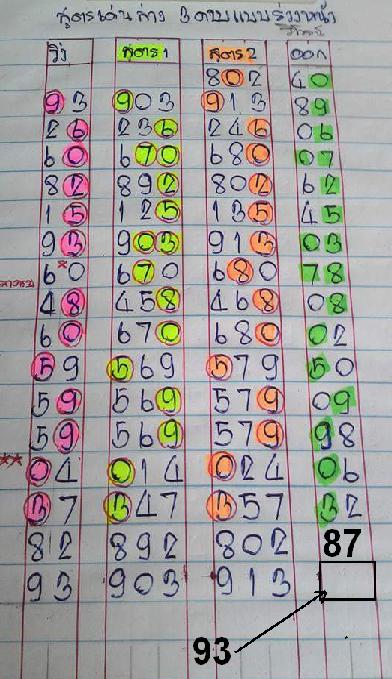 สูตรเด่นล่าง 3 ตามแบบร่วงหน้า
วิ่ง สูตร1 สูตร2 ออก
802 40
93 903 913 89
26 236 246 06
60 670 680 07
82 892 802 62
15 125 135 45
93 903 913 03
6*0 670 680 78
48 458 468 08
60 670 680 02
59 569 579 50
59 569 579 09
59 569 579 98
** 04 014 024 06
37 347 357 32
82 892 802 87
93 903 913
93